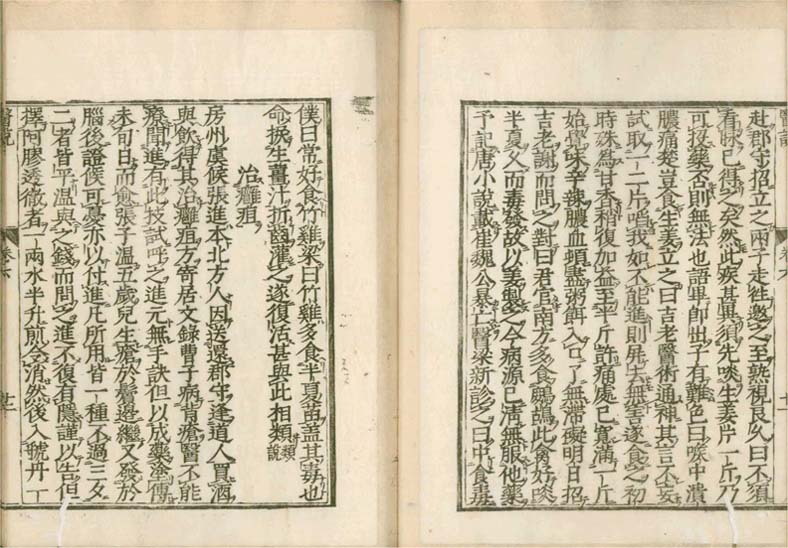 醫説
卷六
十一
赴郡守招立之兩子走徃邀之至熟視良久曰不須
看脉已得之矣然此疾甚異須先啖生姜片一斤乃
可投藥否則無法也語畢即出子有難色曰喉中潰
膿痛楚豈食生姜立之曰吉老醫術通神其言不妄
試取一二片啗我如不能進則屏去無害遂食之初
時殊爲甘香稍復加益至半斤許痛處已寛滿一斤
始覺味辛辣膿血頓盡粥餌入口了無滯礙明日招
吉老謝而問之對曰君官南方多食鷓鴣此禽好啖
半夏久而毒發故以姜制之今病源已清無服他藥
予記唐小説載崔魏公暴亡醫梁新診之曰中食毒
僕曰常好食竹雞梁曰竹雞多食半夏苗蓋其毒也
命捩生薑汁折齒灌之遂復活甚與此相類類説
治癰疽
房州虞候張進本北方人因送還郡守逢道人買酒
與飲得其治癰疽方寄居文録曹子病背瘡醫不能
療聞進有此技試呼之進元無手訣但以成藥塗傅
未旬日而愈張子温五歲兒生瘍於鬢邊繼又發於
腦後證候可憂亦以付進凡所用皆一種不過三夕
二者皆平温與之錢而問之進不復有隱謹以告但
擇阿膠透徹者一兩水半升煎令消然後入虢丹一
醫説
卷六
十二